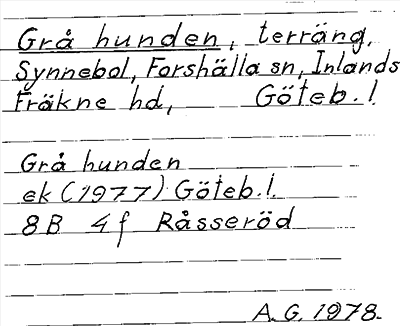 Grå hunden, terräng,
Synnebol, Forshälla sn, Inlands
Fräkne hd, Göteb. l.
Grå hunden
ek (1977) Göteb. l.
8B 4f Råsseröd
A. G. 1978.